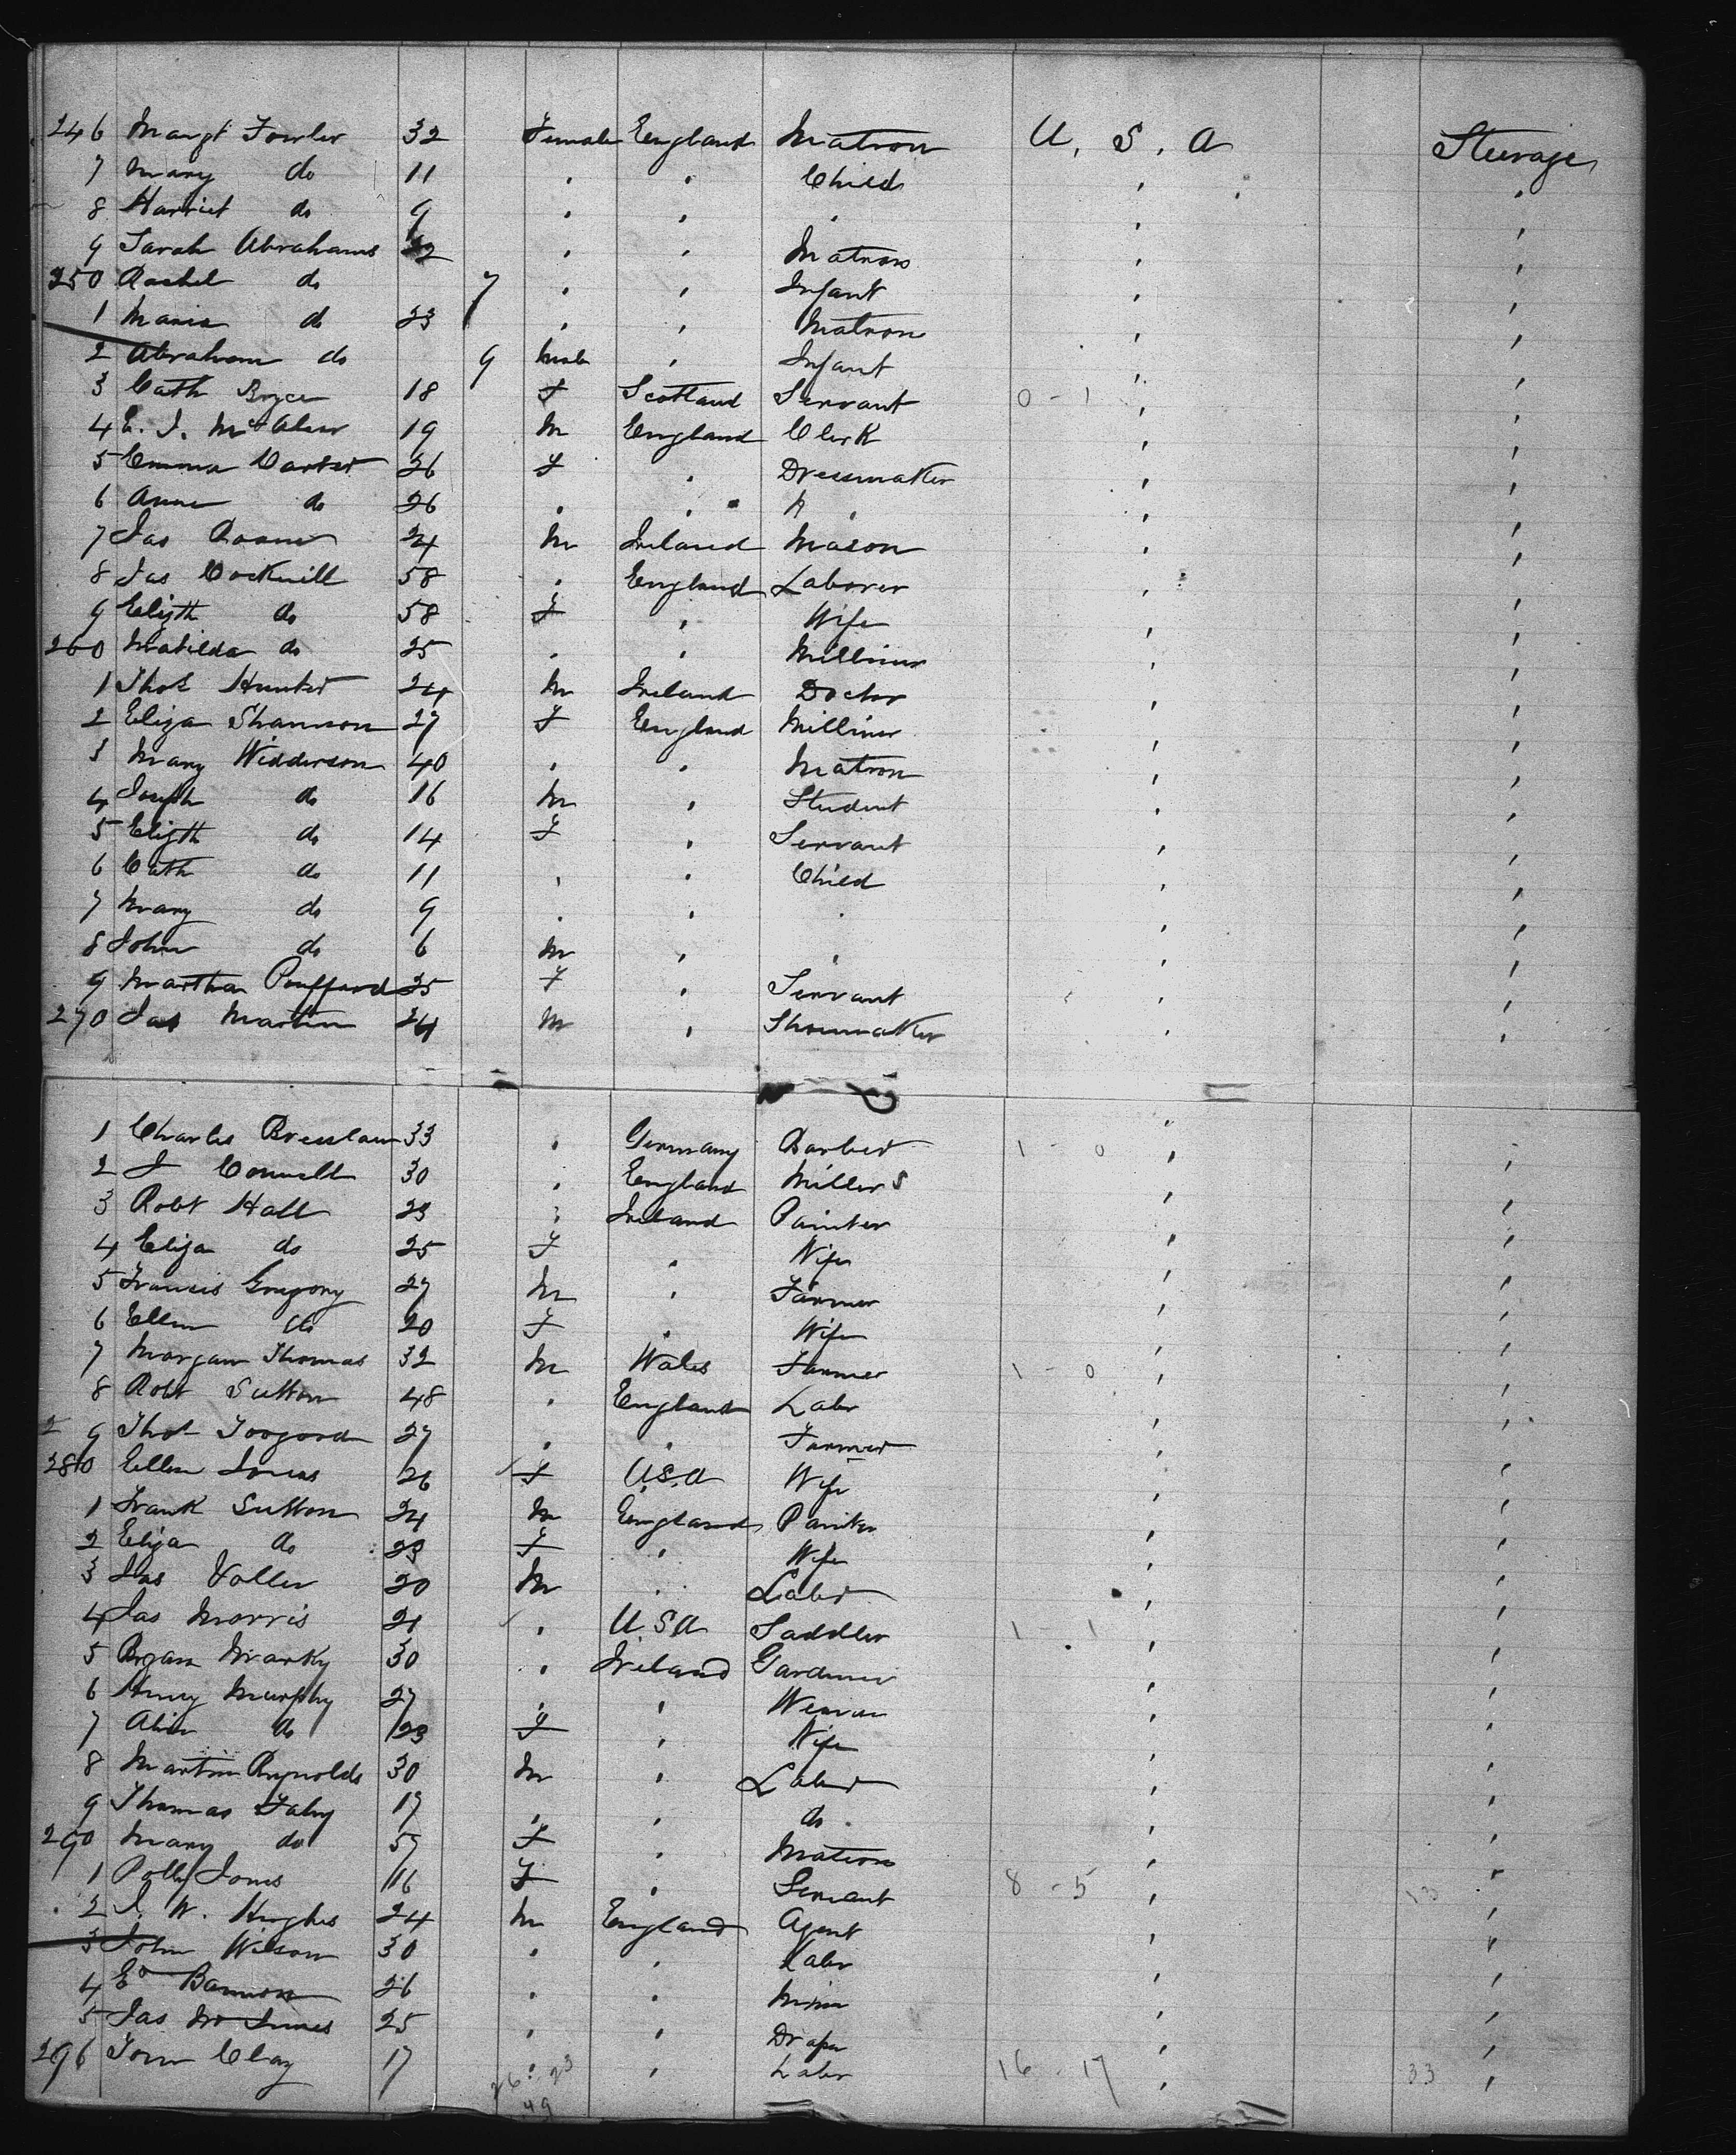 246 Margt Fowler 32 Female England Matron U. S. A Steerage
7 Mary do 11 " " Child " "
8 Harriet do 9 " " " " "
9 Sarah Abrahams 22 " " Matron " "
250 Rachel do 7 " " Infant " "
1 Maria do 23 " " Matron " "
2 Abraham do 9 Male " Infant " "
3 Cath Bryce 18 F Scotland Servant 0 - 1 " "
4 E. J. 19 M England Clerk " "
5 Emma Carter 26 F " Dressmaker " "
6 Anne do 26 " " " " "
7 Jas 24 M Ireland Mason " "
8 Jas Cocknill 58 " England Laborer " "
9 Elizth do 58 F " Wife " "
260 Matilda do 25 " " Milliner " "
1 Thos Hunter 24 M Ireland Doctor " "
2 Eliza Shannon 27 F England Milliner " "
3 Mary Widderson 40 " " Matron " "
4 Joseph do 16 M " Student " "
5 Elizth do 14 F " Servant " "
6 Cath do 11 " " Child " "
7 Mary do 9 " " " " "
8 John do 6 M " " " "
9 Martha Puffard 25 F " Servant " "
270 Jas Martin 24 M " Shoemaker " "
1 Charles Bresslaw 33 " Germany Barber 1 - 0 " "
2 J Connell 30 " England Millers " "
3 Robt Hall 23 " Ireland Painter " "
4 Eliza do 25 F " Wife " "
5 Francis Gregory 27 M " Farmer " "
6 Ellen do 20 F " Wife " "
7 Morgan Thomas 32 M Wales Farmer 1 - 0 " "
8 Robt Sutton 48 " England Labr " "
9 Thos Toogood 27 " " Farmer " "
280 Ellen 26 F U.S.A Wife " "
1 Frank Sutton 24 M England Painter " "
2 Eliza do 23 F " Wife " "
3 Jas Voller 20 M " Labr " "
4 Jas Morris 21 " U.S.A Saddler 1 - 1 " "
5 Bryan Marky 30 " Ireland Gardener " "
6 Henry Murphy 27 " " Weaver " "
7 Alice do 23 F " Wife " "
8 Martin Reynolds 30 M " Labr " "
9 Thomas Fahy 17 " " do " "
290 Mary do 57 F " Matron " "
1 Polly Jones 16 F " Servant 8 - 5 " 13 "
2 J. W. Hughes 24 M England Agent " "
3 John Wilson 30 " " Labr " "
4 Ed Bannon 26 " " Miner " "
5 Jas 25 " " Draper " "
296 Tom Clay 17 " " Labr 16 - 17 " 33 "
26 : 23
49